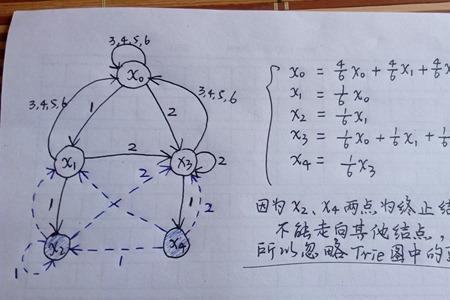 3,4,5,6
x₀
1
2
3,4,5,6
3,4,5,6
x₁
2
x₃
2
1
2
1
2
x₂
x₄
1
1
x₀ = 4/6 x₀ + 4/6 x₁ + 4/6 x
x₁ = 1/6 x₀
x₂ = 1/6 x₁
x₃ = 1/6 x₀ + 1/6 x₁ + 1/6
x₄ = 1/6 x₃
因为 x₂、x₄ 两点为终止结
不能走向其他结点,
所以忽略Trie图中的